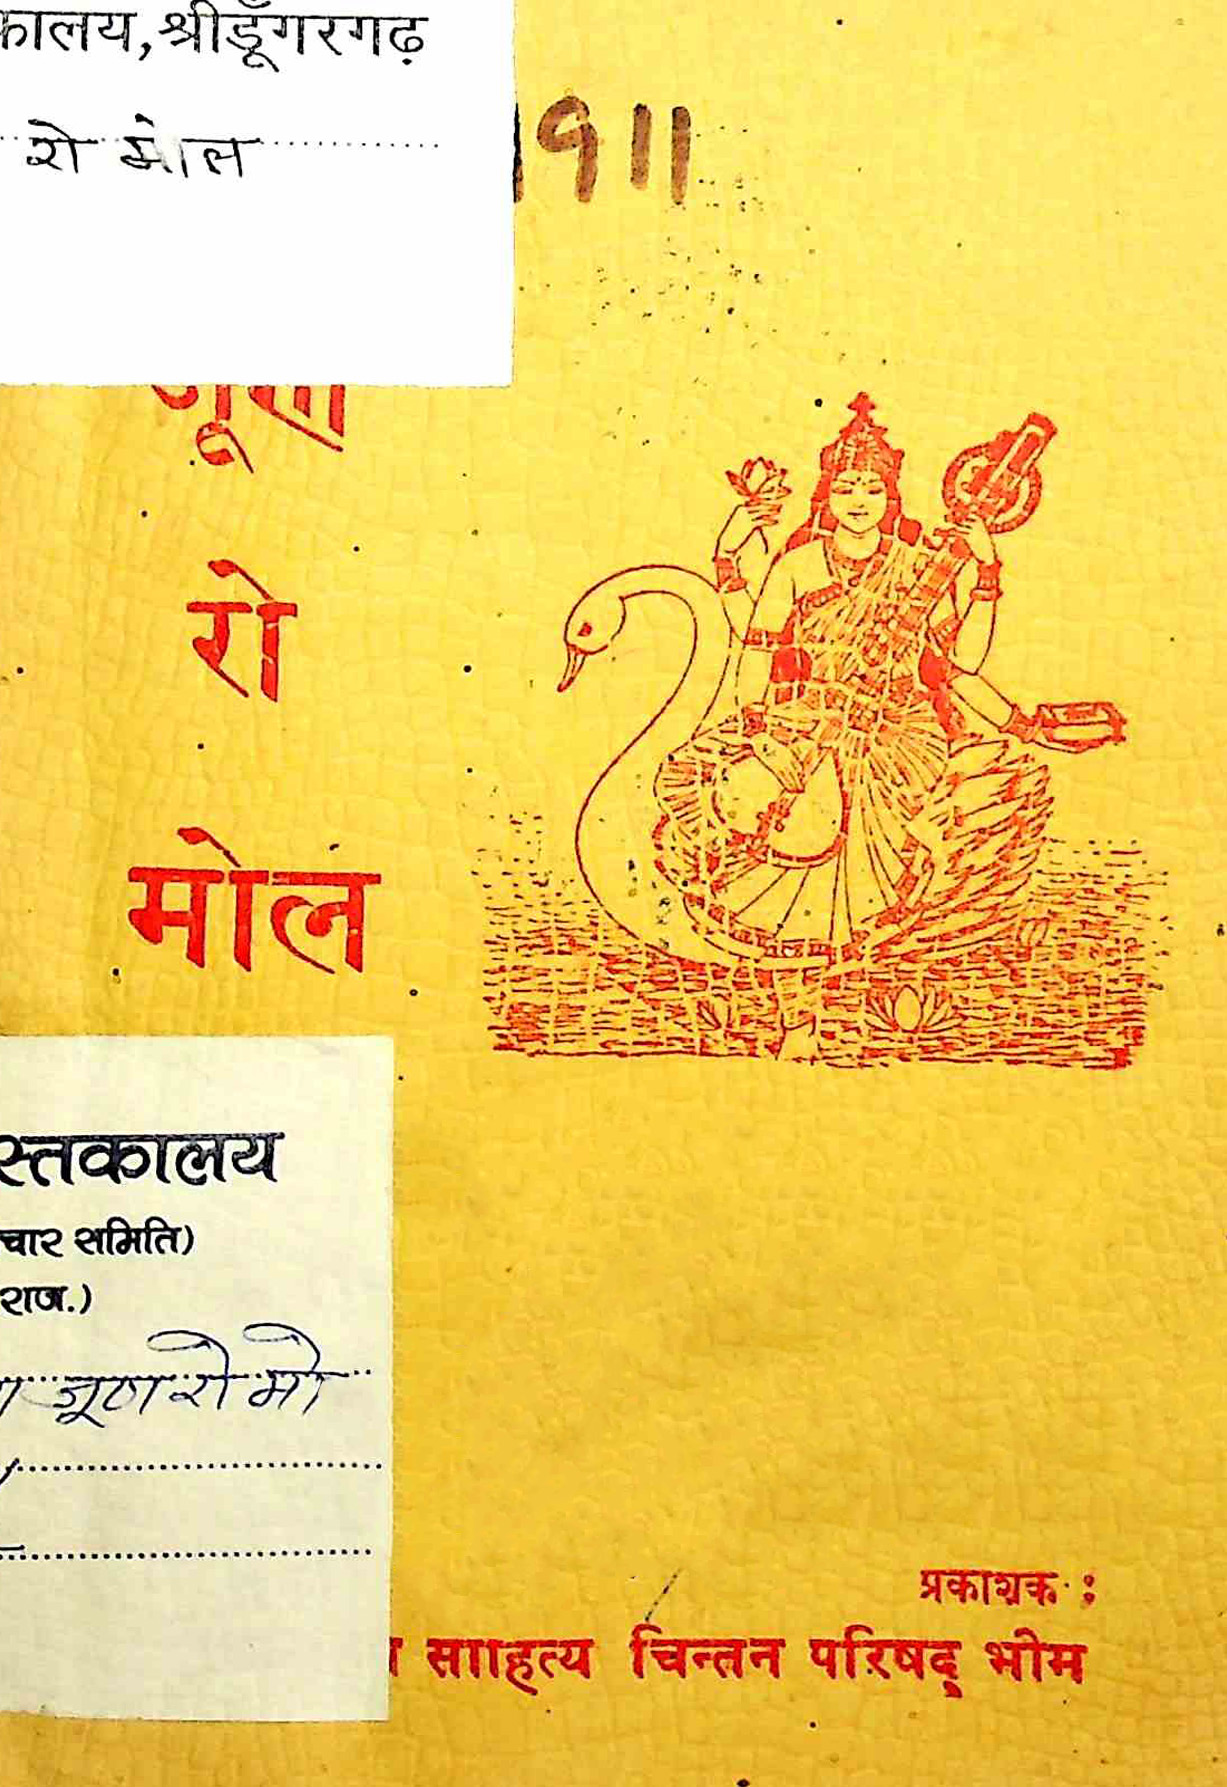 कालय, श्रीडूँगरगढ़
रो मोल
१११
रो
मोल
स्तकालय
चार समिति)
राज.)
जूण रो मो
प्रकाशक :
साहित्य चिन्तन परिषद् भीम